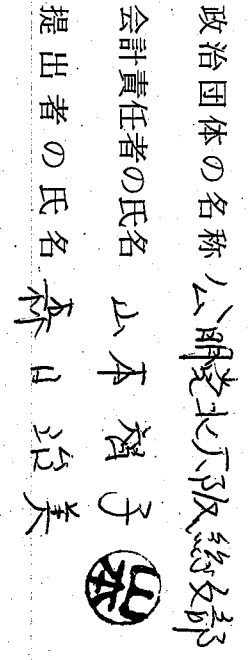 政治団体の名称 公明党北大阪総支部
会計責任者の氏名 山本 智子 山本
提出者の氏名 森口 治美